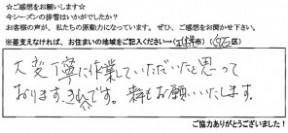 ☆ご感想をお願いします☆
今シーズンの排雪はいかがでしたか?
お客様の声が、私たちの原動力になっています。ぜひ、ご感想をお聞かせ下さい。
※差支えなければ、お住まいの地域をご記入ください→(札幌市)(西区)
大変丁寧に作業していただいたと思って
おります。きれいです。来年もお願いいたします。
ご協力ありがとうございました!